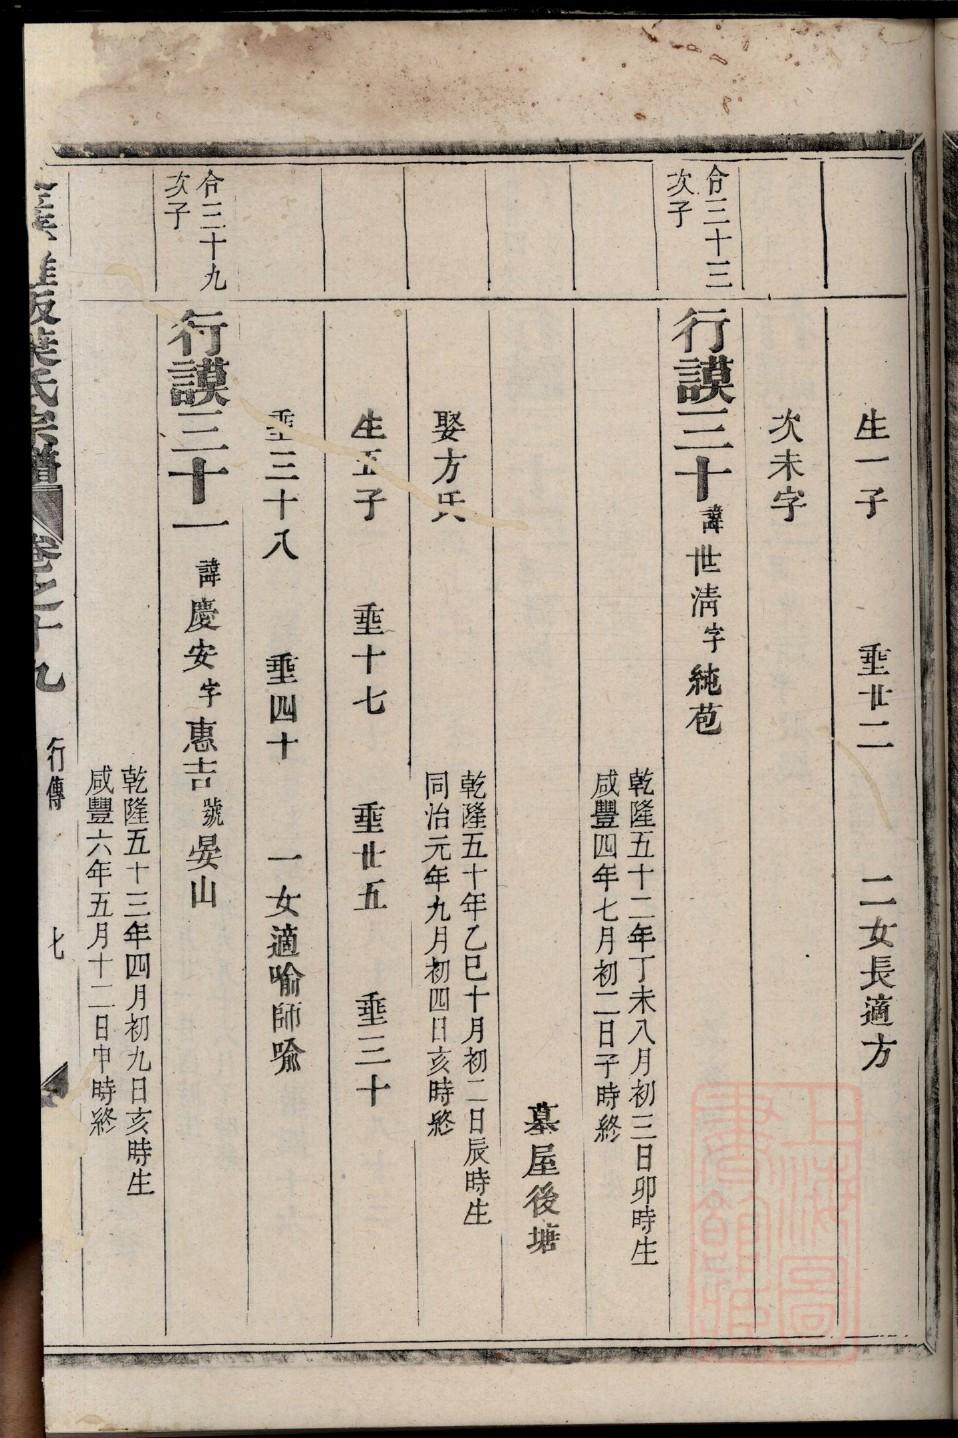 生一子 垂廿二 二女長適方
次未字
合三十三
次子
行謨三十 諱世淸字純苞
乾隆五十二年丁未八月初三日卯時生
咸豐四年七月初二日子時終
墓屋後塘
娶方氏
乾隆五十年乙巳十月初二日辰時生
同治元年九月初四日亥時終
生五子 垂十七 垂廿五 垂三十
垂三十八 垂四十 一女適喻師喻
合三十九
次子
行謨三十一 諱慶安字惠吉號晏山
乾隆五十三年四月初九日亥時生
咸豐六年五月十二日申時終
雅坂葉氏宗譜 卷之十九 行傳 七
上海圖書館藏